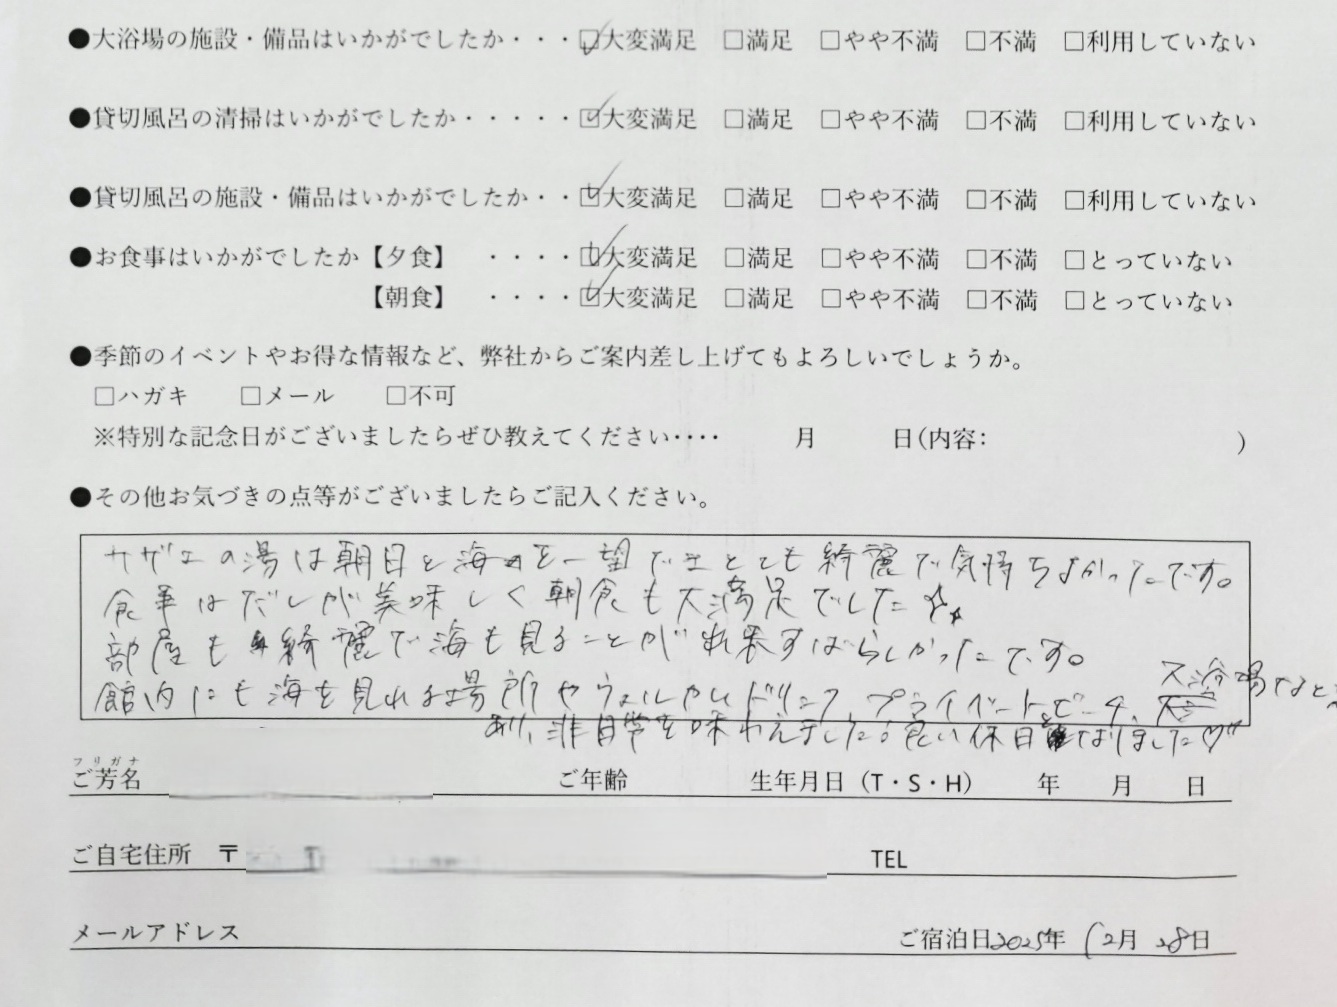 ●大浴場の施設・備品はいかがでしたか・・・☑大変満足 □満足 □やや不満 □不満 □利用していない
●貸切風呂の清掃はいかがでしたか・・・・・☑大変満足 □満足 □やや不満 □不満 □利用していない
●貸切風呂の施設・備品はいかがでしたか・・☑大変満足 □満足 □やや不満 □不満 □利用していない
●お食事はいかがでしたか【夕食】 ・・・・☑大変満足 □満足 □やや不満 □不満 □とっていない
【朝食】 ・・・・☑大変満足 □満足 □やや不満 □不満 □とっていない
●季節のイベントやお得な情報など、弊社からご案内差し上げてもよろしいでしょうか。
□ハガキ □メール □不可
※特別な記念日がございましたらぜひ教えてください‥‥ 月 日(内容: )
●その他お気づきの点等がございましたらご記入ください。
サザエの湯は朝日と海を一望でき とても綺麗で気持ちよかったです。
食事はだしが美味しく朝食も大満足でした
部屋も綺麗で海も見ることが出来すばらしかったです。
館内にも海を見れる場所やウェルカムドリンク、プライベートビーチ、大浴場など
あり、非日常を味わえました。良い休日になりました♡
フリガナ
ご芳名 ご年齢 生年月日（T・S・H） 年 月 日
ご自宅住所 〒 TEL
メールアドレス ご宿泊日2025年 12月 28日